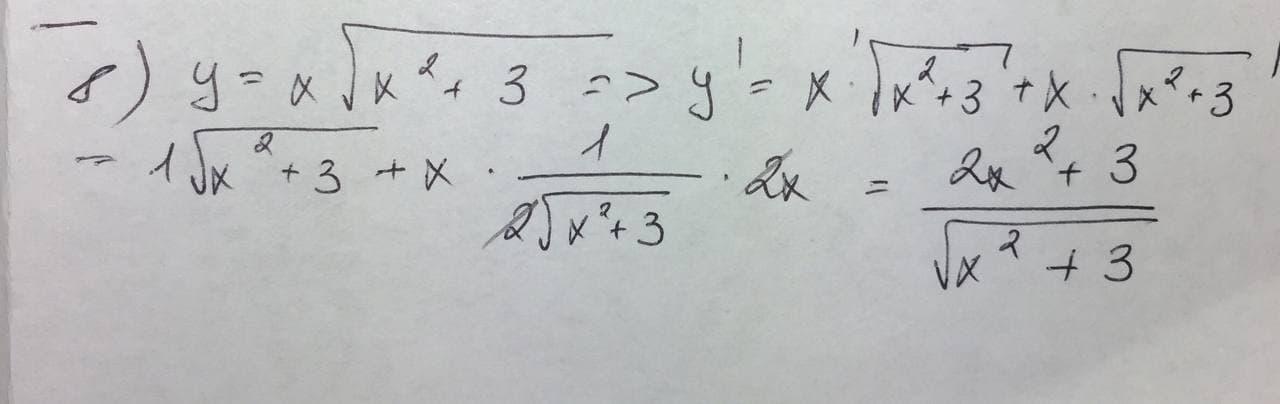 8) y = x√(x² + 3) => y' = x'·√(x²+3) + x · √(x²+3)'
= 1√(x² + 3) + x · 1/(2√(x²+3)) · 2x = (2x² + 3)/√(x² + 3)